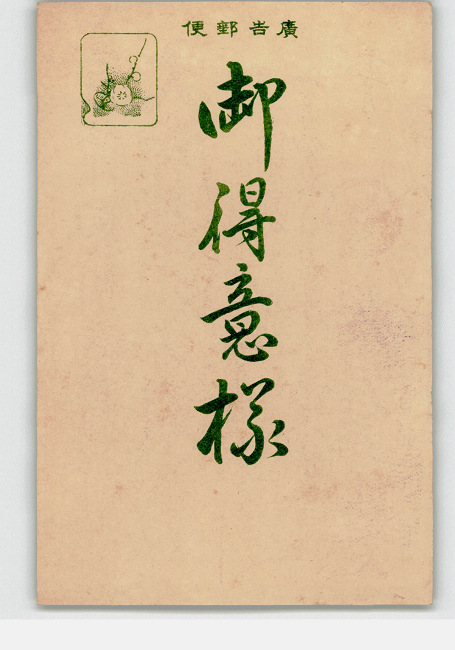 廣告郵便
御得意樣